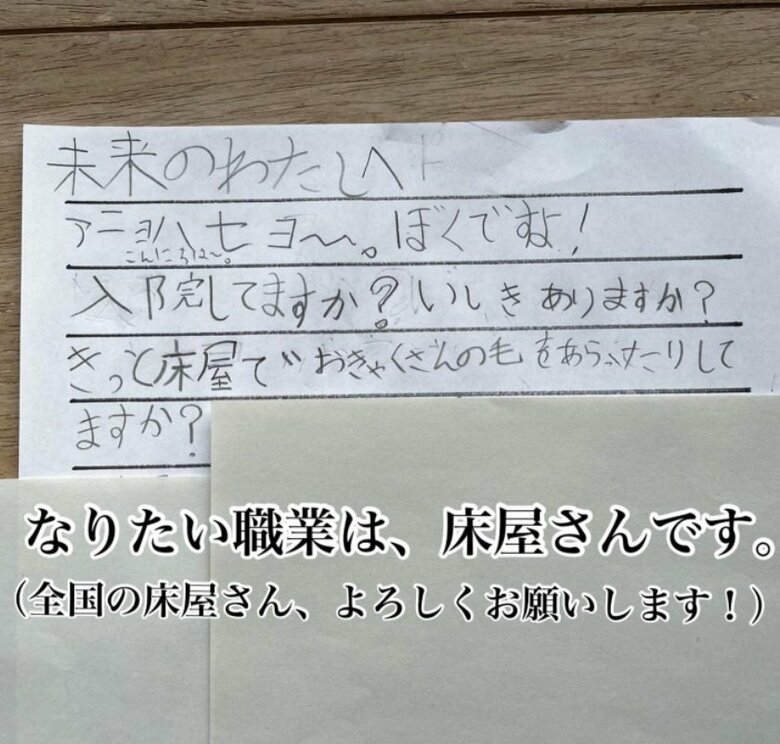 未来のわたしへ
アニョハセヨ〜。ぼくですよ！
こんにちは〜。
入院してますか？いしきありますか？
きっと床屋でおきゃくさんの毛をあらったりして
ますか？
なりたい職業は、床屋さんです。
（全国の床屋さん、よろしくお願いします！）